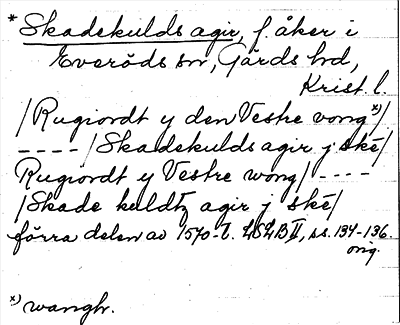 * Skadekulds agir, f. åker i
Everöds sn, Gärds hrd,
Krist. l.
/Rugiordt y den Vestre vong x)/
---- /Skadekulds agir j ské/
Rugiordt y Vestre wong/ ----
/Skade kuldtz agir j ské/
förra delen av 1570-t. LSLB II, s.s. 134-136.
orig.
x) wangh.